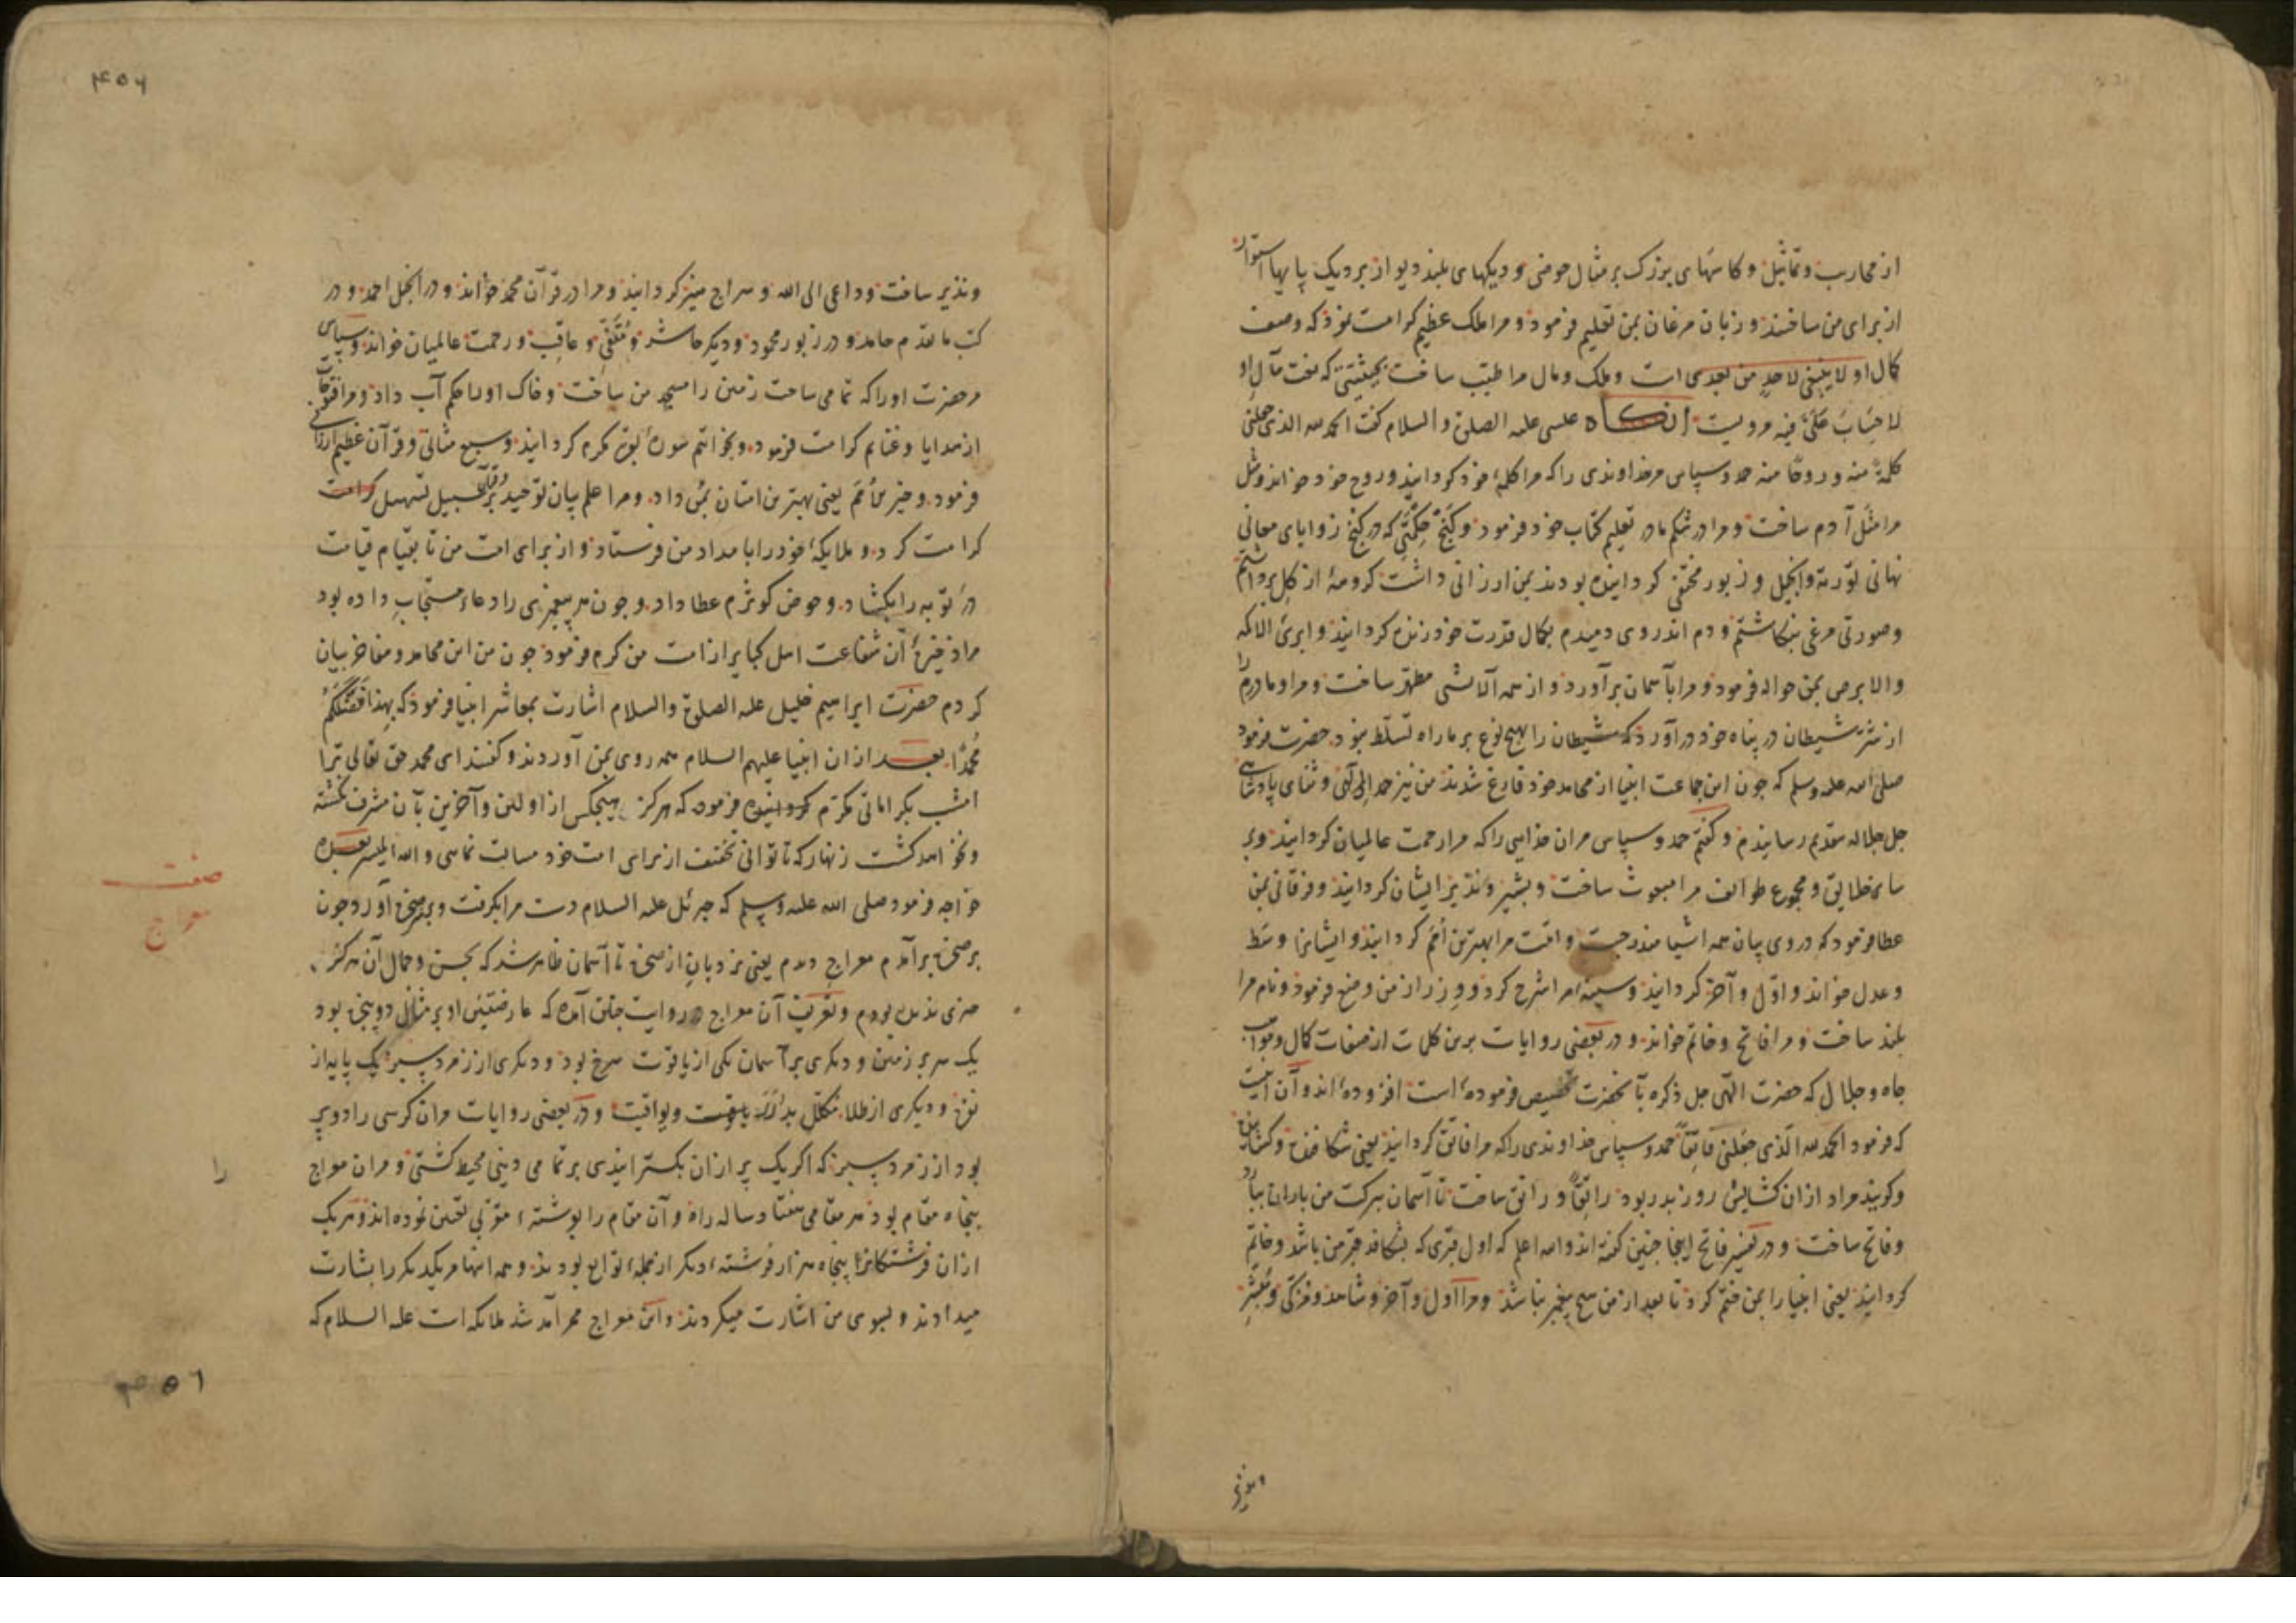 از محاریب و تماثیل و کاسهای بزرک بر مثال حوضی و دیکهای بلند دیوار بر دیک پایها استوار
از برای من ساختند و زبان مرغان بمن تعلیم فرمود و مرا ملک عظیم کرامت نمود که وصف
کمال او لا ینبغی لاحد من بعدی است و ملک و مال مرا طیب ساخت بحیثیتی که سخت مآل او
لا حساب علی فیه مرویست انکاه عیسی علیه الصلوة والسلام کفت الحمد لله الذی جعلنی
کلمة منه و روحا منه حمد و سپاس مر خداوندی را که مرا کلمهٔ خود کردانید و روح خود خواند و مثل
مرا مثل آدم ساخت و مرا در شکم مادر تعلیم کتاب خود فرمود و کنج حکمتی که در کنج زوایای معانی
نهانی توریة و انجیل و زبور مختفی کردانیده بودند بمن ارزانی داشت که و مهٔ از کل برداشتم
و صورتی مرغی بنکاشتم و دم اندر وی دمیدم بکمال قدرت خود زنده کردانید و ابرئ الاکمه
والابرص بمن حواله فرمود و مرا بآسمان برآورد و از همه آلایشی مطهر ساخت و مرا و مادرم را
از شر شیطان در پناه خود درآورد که شیطان را بهیچ نوع بر ما راه تسلط نبود حضرت فرمود
صلی الله علیه وسلم که چون این جماعت انبیا از محامد خود فارغ شدند من نیز حمد الهی و ثنای پادشاهی
جل جلاله بتقدیم رسانیدم و کفتم حمد و سپاس مران خدایی را که مرا رحمت عالمیان کردانید و بر
سایر خلایق و مجموع طوایف مرا مبعوث ساخت و بشیر و نذیر ایشان کردانید و فرقانی بمن
عطا فرمود که در وی بیان همه اشیا مندرجست و امت مرا بهترین امم کردانید و ایشانرا وسط
و عدل خواند و اول و آخر کردانید و سینهٔ مرا شرح کرد و وزر از من وضع فرمود و نام مرا
بلند ساخت و مرا فاتح و خاتم خواند و در بعضی روایات برین کلمات از صفات کمال و مواهب
جاه و جلال که حضرت الهی جل ذکره بآنحضرت تخصیص فرموده است افزوده اند و آن اینست
که فرمود الحمد لله الذی جعلنی فاتقا حمد و سپاس خداوندی را که مرا فاتق کردانید یعنی شکافنده و کشاینده
و کویند مراد از ان کشایش روز بدر بود راتقا و راتق ساخت تا آسمان ببرکت من باران ببارد
و فاتح ساخت و در تفسیر فاتح اینجا چنین کفته اند والله اعلم که اول قبری که بشکافد قبر من باشد و خاتم
کردانید یعنی انبیا را بمن ختم کرد تا بعد از من هیچ پیغمبر نباشد و مرا اول و آخر و شاهد و مزکی و مبشر
۴۵۶
و نذیر ساخت و داعی الی الله و سراج منیر کردانید و مرا در قرآن محمد خواند و در انجیل احمد و در
کتب ما تقدم حامد و در زبور محمود و دیکر حاشر و مقفی و عاقب و رحمت عالمیان خواند و سپاس
مر حضرت او را که تمامی ساحت زمین را مسجد من ساخت و خاک او را حکم آب داد و مرا فتوحات
از هدایا و غنایم کرامت فرمود و بخواتیم سورهٔ بقره مکرم کردانید و سبع مثانی و قرآن عظیم ارزانی
فرمود و خیر امم یعنی بهترین امتان بمن داد و مرا علم بیان توحید و قرآن بر سبیل تسهیل کرامت
کرامت کرد و ملایکهٔ خود را بامداد من فرستاد و از برای امت من تا بقیام قیامت
در توبه را بکشاد و حوض کوثرم عطا داد و چون هر پیغمبری را دعاء مستجاب داده بود
مرا ذخیرهٔ آن شفاعت اهل کبایر از امت من کرم فرمود چون من این محامد و مفاخر بیان
کردم حضرت ابراهیم خلیل علیه الصلوة والسلام اشارت بمعاشر انبیا فرمود که بهذا فضلکم
محمد بعد ازان انبیا علیهم السلام همه روی بمن آوردند و کفتند ای محمد حق تعالی ترا
امشب بکراماتی مکرم کردانیده فرموده که هرکز هیچکس از اولین و آخرین بآن مشرف نکشته
و نخواهد کشت زنهار که تا توانی تخفیف از برای امت خود مسالت نمایی والله المیسر بعده
خواجه فرمود صلی الله علیه وسلم که جبرئیل علیه السلام دست مرا بکرفت و بر صخره آورد چون
بر صخره برآمدم معراج دیدم یعنی نردبان از صخره تا آسمان ظاهر شد که بحسن و جمال آن هرکز
چیزی ندیده بودم و تعریف آن معراج در روایت چنین آمده که عارضتین او بر مثال دو پنجه بود
یک سر بر زمین و دیکری بر آسمان یکی از یاقوت سرخ بود و دیکری از زمرد سبز یک پایه از
نقره و دیکری از طلا مکلل بدرر یاقوت و یواقیت و در بعضی روایات مران کرسی را دو پر
بود از زمرد سبز که اکر یک پر ازان بکسترانیدی بر تمامی دنیی محیط کشتی و مران معراج
پنجاه مقام بود هر مقامی هفتاد ساله راه و آن مقام را بوشتهٔ موکلی تعیین نموده اند و هر یک
ازان فرشتکانرا پنجاه هزار فرشتهٔ دیکر از جملهٔ توابع بودند و همه اینها مر یکدیکر را بشارت
میدادند و بسوی من اشارت میکردند و این معراج محر آمد شد ملایکه است علیه السلام که
صفت
معراج
را
۴۵۶